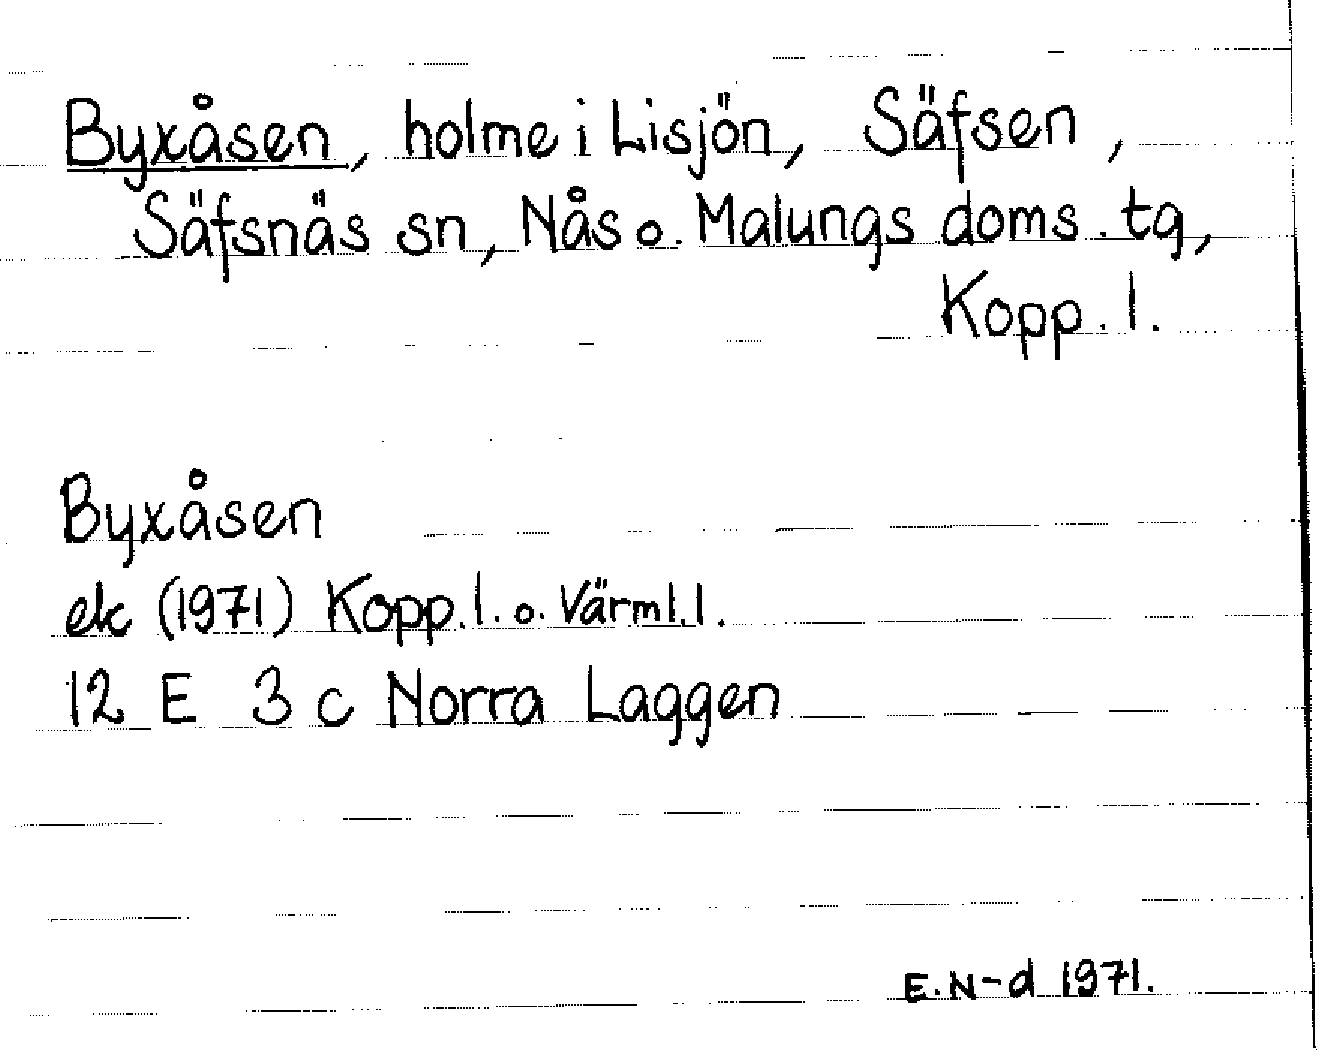 Byxåsen, holme i Lisjön, Säfsen,
Säfsnäs sn, Nås o. Malungs doms. tg,
Kopp. l.
Byxåsen
ek (1971) Kopp. l. o. Värml. l.
12 E 3 c Norra Laggen
E. N-d 1971.